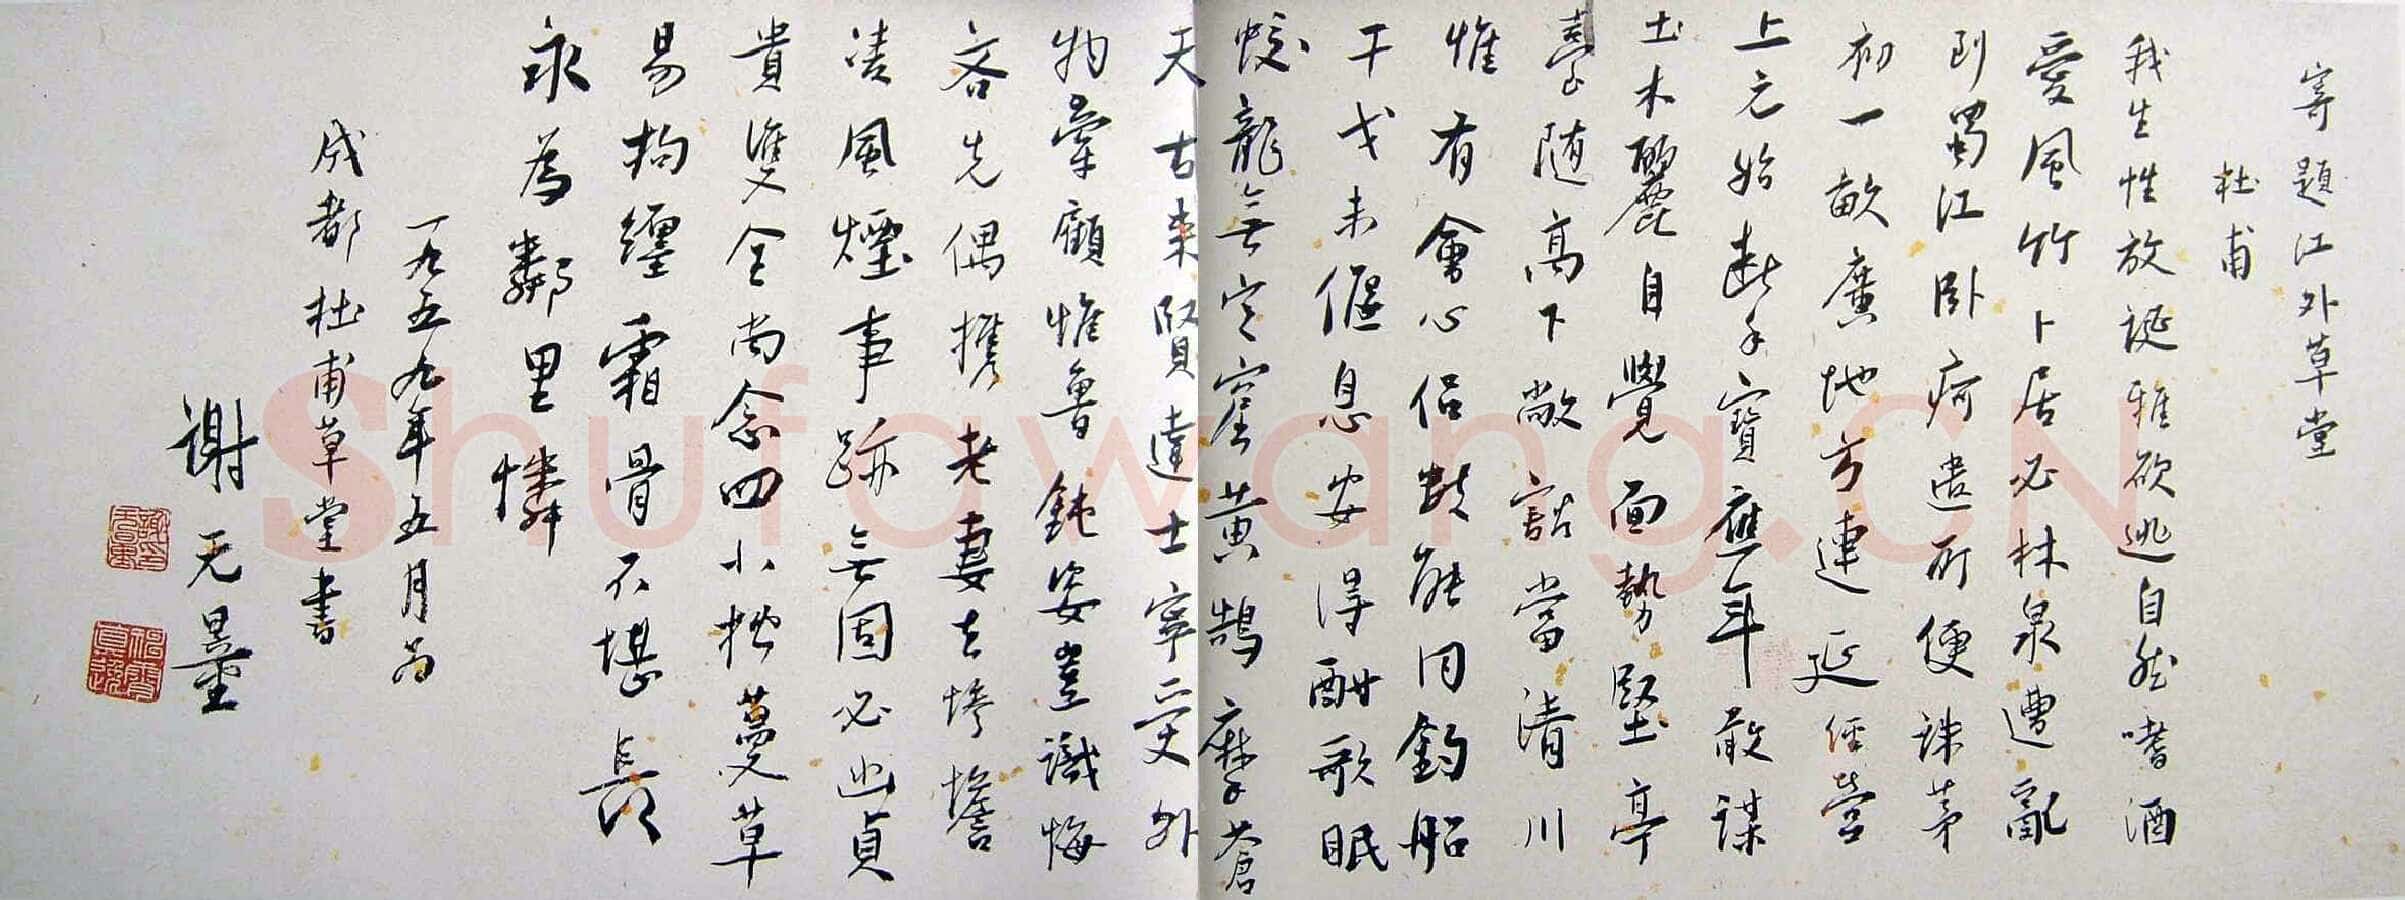 寄題江外草堂
杜甫
我生性放誕雅欲逃自然嗜酒
愛風竹卜居必林泉遭亂
到蜀江臥痾遣所便誅茅
初一畝廣地方連延經營
上元始斷手寶應年敢謀
土木麗自覺面勢堅亭
臺隨高下敞豁當清川
惟有會心侶數能同釣船
干戈未偃息安得酣歌眠
蛟龍無定窟黃鵠摩蒼
天古來賢達士寧受外
物牽顧惟魯鈍姿豈識悔
吝先偶攜老妻去慘澹
凌風煙事跡無固必幽貞
貴雙全尚念四小松蔓草
易拘纏霜骨不堪長
永為鄰里憐
一九五九年五月為
成都杜甫草堂書
謝无量
Shufawang.CN